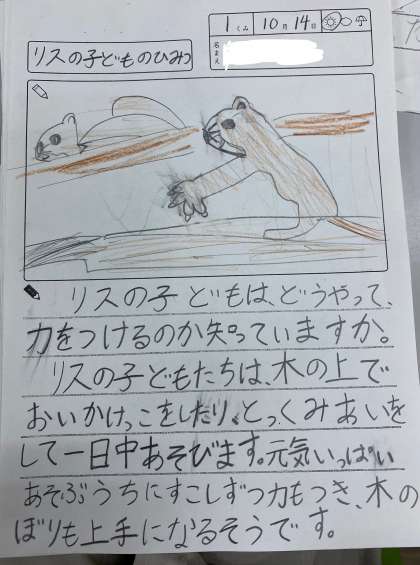 1くみ 10月14日
名まえ
リスの子どものひみつ
リスの子どもは、どうやって、
力をつけるのか知っていますか。
リスの子どもたちは、木の上で
おいかけっこをしたり、とっくみあいを
して一日中あそびます。元気いっぱい
あそぶうちにすこしずつ力もつき、木の
ぼりも上手になるそうです。